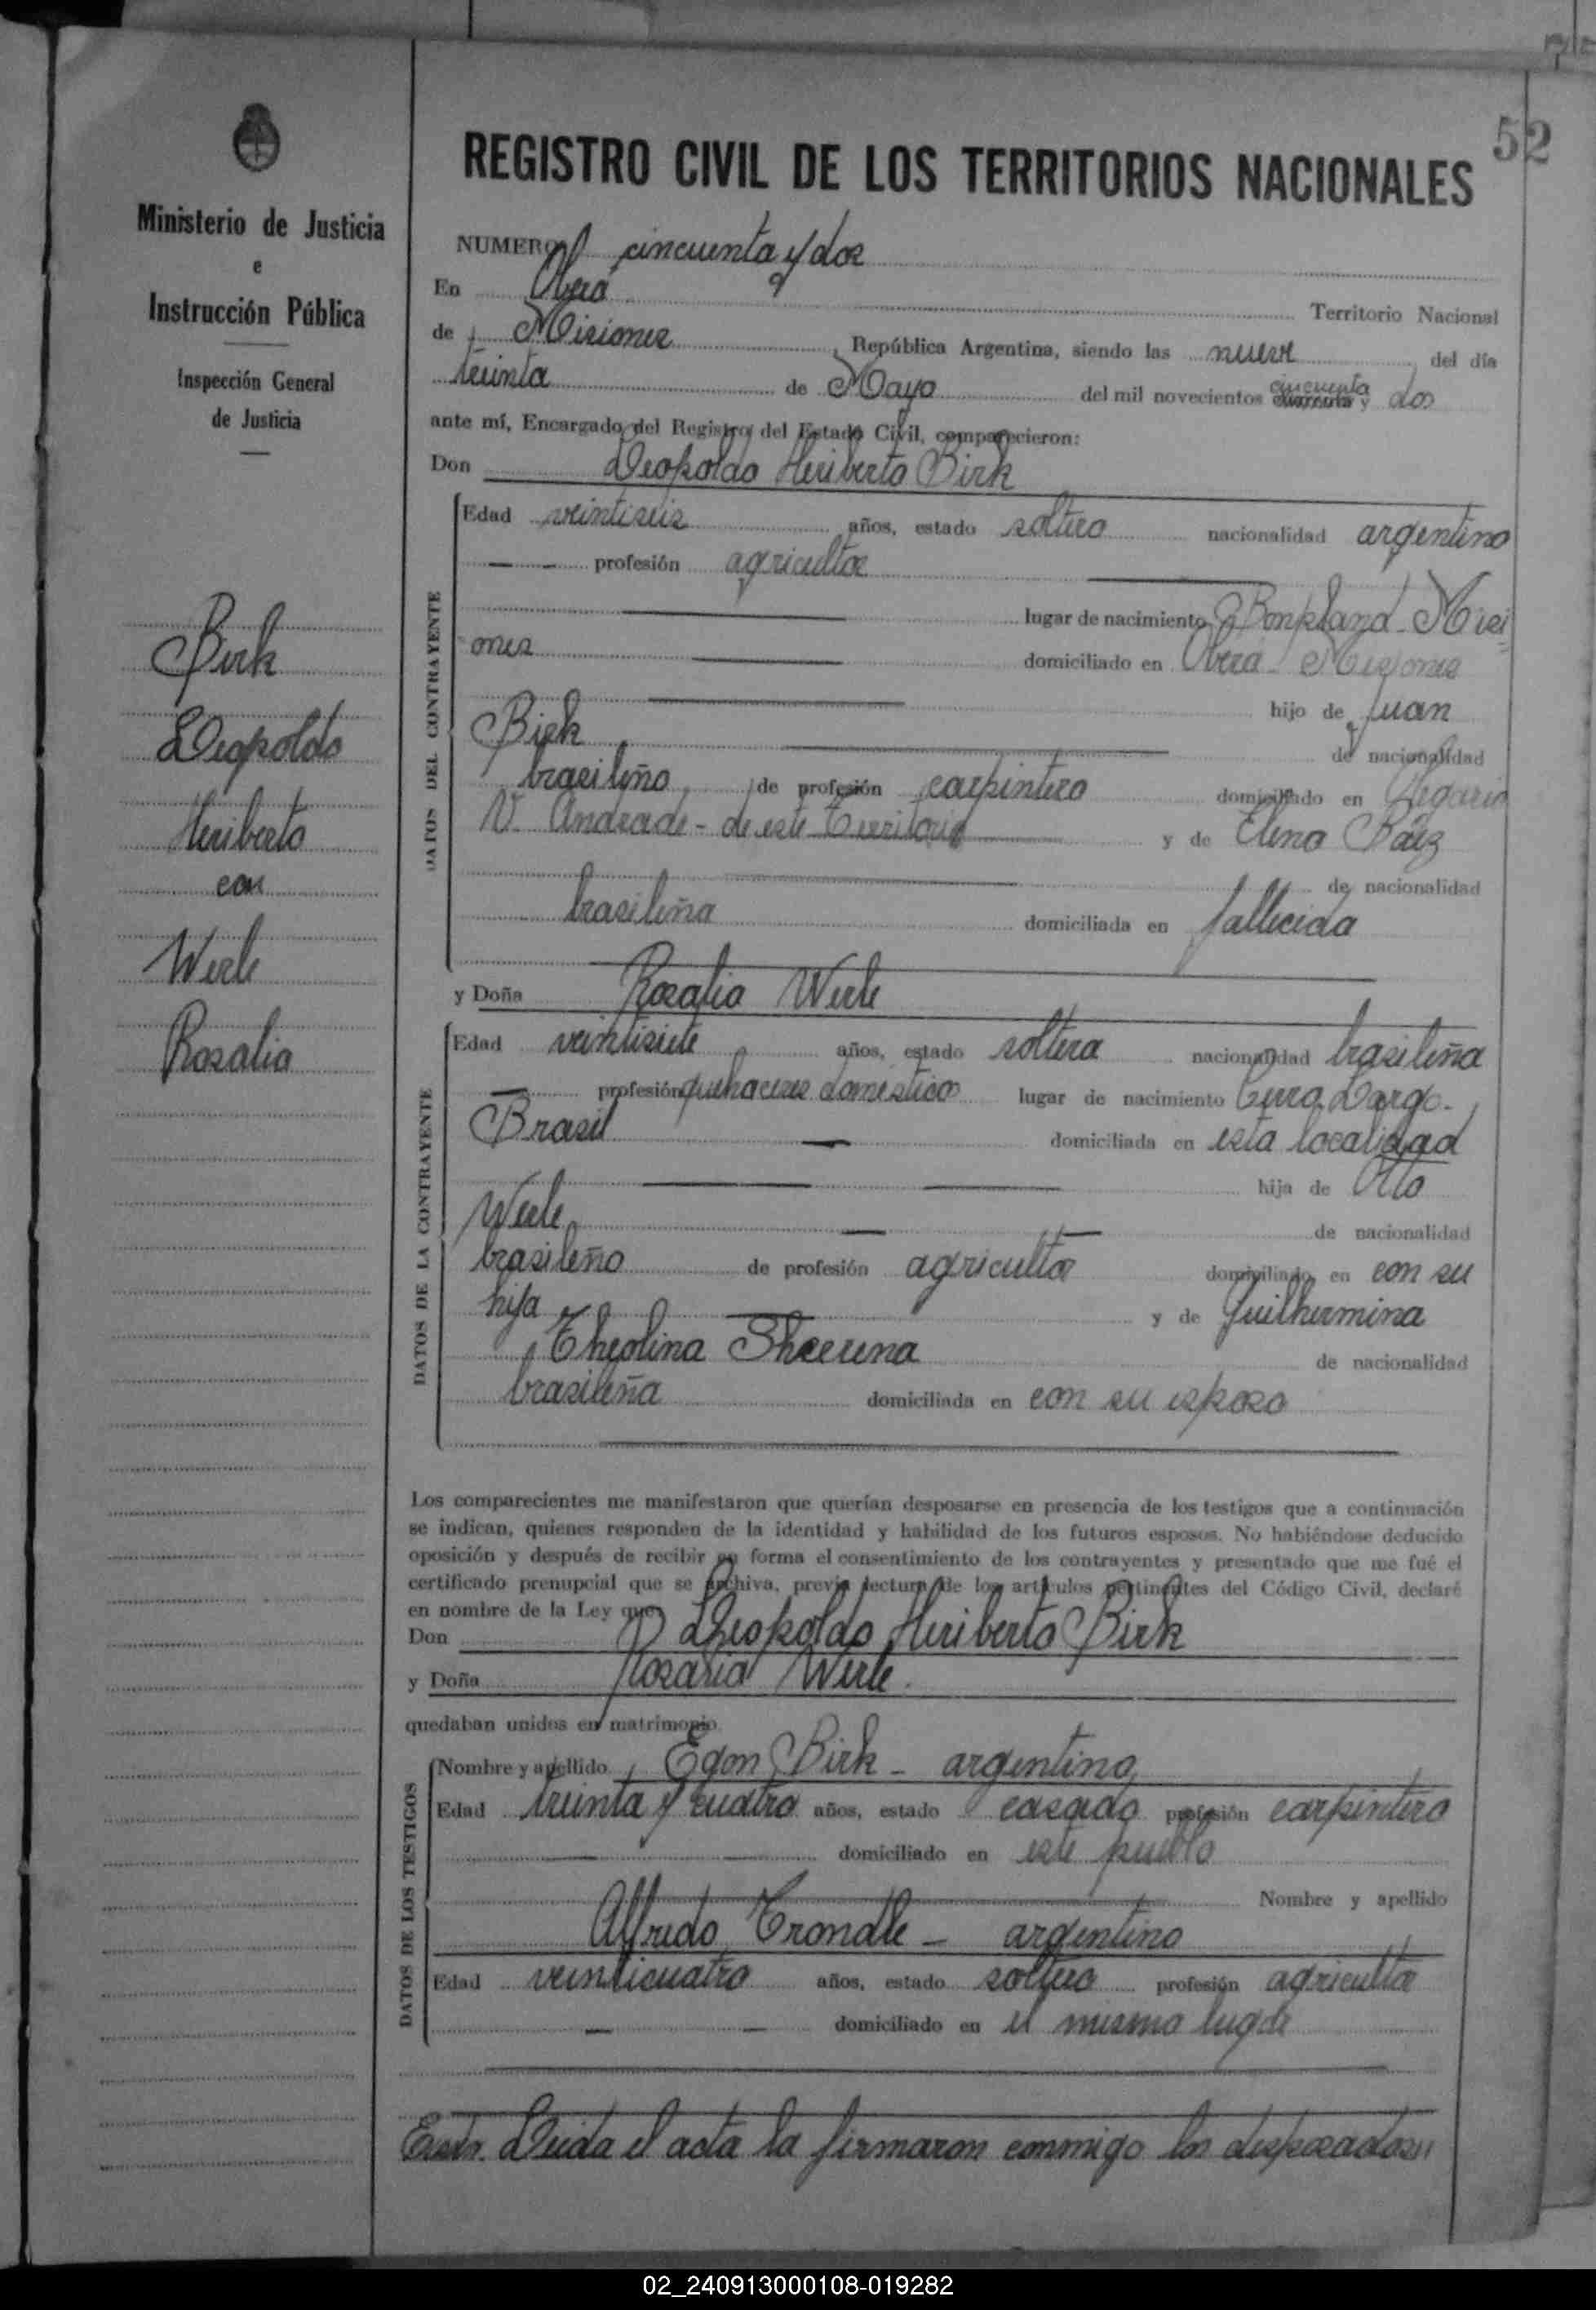 52
REGISTRO CIVIL DE LOS TERRITORIOS NACIONALES
Ministerio de Justicia
e
Instrucción Pública
Inspección General
de Justicia
Birk
Leopoldo
Heriberto
con
Werle
Rosalia
NUMERO cincuenta y dos
En Oberá Territorio Nacional
de Misiones, República Argentina, siendo las nueve del día
treinta de Mayo del mil novecientos cincuenta y dos
ante mí, Encargado del Registro del Estado Civil, comparecieron:
Don Leopoldo Heriberto Birk
DATOS DEL CONTRAYENTE
Edad veintiseis años, estado soltero nacionalidad argentino
profesión agricultor
lugar de nacimiento Bonpland - Misi
ones domiciliado en Oberá - Misiones
hijo de Juan
Birk de nacionalidad
brasileño de profesión carpintero domiciliado en Olegario
V. Andrade - de este Territorio y de Elena Báez
de nacionalidad
brasileña domiciliada en fallecida
y Doña Rosalia Werle
DATOS DE LA CONTRAYENTE
Edad veintisiete años, estado soltera nacionalidad brasileña
profesión quehaceres domestico lugar de nacimiento Largo -
Brasil domiciliada en esta localidad
hija de Otto
Werle de nacionalidad
brasileño de profesión agricultor domiciliado en con su
hija y de Guilhermina
Theolina de nacionalidad
brasileña domiciliada en con su esposo
Los comparecientes me manifestaron que querían desposarse en presencia de los testigos que a continuación
se indican, quienes responden de la identidad y habilidad de los futuros esposos. No habiéndose deducido
oposición y después de recibir en forma el consentimiento de los contrayentes y presentado que me fué el
certificado prenupcial que se archiva, previa lectura de los artículos pertinentes del Código Civil, declaré
en nombre de la Ley que
Don Leopoldo Heriberto Birk
y Doña Rosalia Werle.
quedaban unidos en matrimonio
DATOS DE LOS TESTIGOS
Nombre y apellido Egon Birk - argentino
Edad treinta y cuatro años, estado casado profesión carpintero
domiciliado en este pueblo
Nombre y apellido
Alfredo Trondle - argentino
Edad veinticuatro años, estado soltero profesión agricultor
domiciliado en el mismo lugar
Leida el acta la firmaron conmigo los desposados,,
02_240913000108-019282